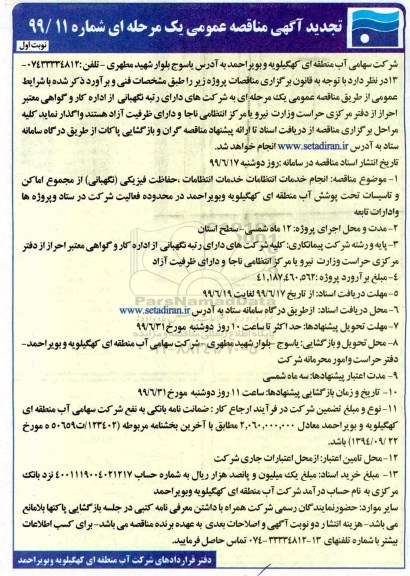 تجدید آگهی مناقصه عمومی یک مرحله ای شماره ۹۹/۱۱
نوبت اول
شرکت سهامی آب منطقه ای کهگیلویه و بویراحمد به آدرس یاسوج بلوار شهید مطهری - تلفن: ۰۷۴۳۳۳۳۴۸۱۲-
۱۳ در نظر دارد با توجه به قانون برگزاری مناقصات پروژه زیر را طبق مشخصات فنی و برآورد ذکر شده با شرایط
عمومی از طریق مناقصه عمومی یک مرحله ای به شرکت های دارای رتبه نگهبانی از اداره کار و گواهی معتبر
احراز از دفتر مرکزی حراست وزارت نیرو یا مرکز انتظامی ناجا و دارای ظرفیت آزاد هستند واگذار نماید کلیه
مراحل برگزاری مناقصه از دریافت اسناد تا ارائه پیشنهاد مناقصه گران و بازگشایی پاکات از طریق درگاه سامانه
ستاد به آدرس www.setadiran.ir انجام خواهد شد.
تاریخ انتشار اسناد مناقصه در سامانه :روز دوشنبه ۹۹/۶/۱۷
۱- موضوع مناقصه: انجام خدمات انتظامات خدمات انتظامات ،حفاظت فیزیکی (نگهبانی) از مجموع اماکن
و تاسیسات تحت پوشش آب منطقه ای کهگیلویه وبویراحمد در محدوده فعالیت شرکت در ستاد وپروژه ها
وادارات تابعه
۲- مدت و محل اجرای پروژه: ۱۲ ماه شمسی -سطح استان
۳- پایه و رشته شرکت پیمانکاری: کلیه شرکت های دارای رتبه نگهبانی از اداره کار و گواهی معتبر احراز از دفتر
مرکزی حراست وزارت نیرو یا مرکز انتظامی ناجا و دارای ظرفیت آزاد
۴- مبلغ برآورد پروژه :۴۱,۱۸۷,۴۶۰,۵۶۲
۵- مهلت دریافت اسناد: از تاریخ ۹۹/۶/۱۷ لغایت ۹۹/۶/۱۹
۶- محل دریافت اسناد: ازطریق درگاه سامانه ستاد به آدرس www.setadiran.ir
۷- مهلت تحویل پیشنهادها: حد اکثر تا ساعت ۱۰ روز دوشنبه مورخ ۹۹/۶/۳۱
۸- محل تحویل و بازگشایی: یاسوج -بلوار شهید مطهری - شرکت سهامی آب منطقه ای کهگیلویه و بویراحمد-
دفتر حراست وامور محرمانه شرکت
۹- مدت اعتبار پیشنهادها: سه ماه شمسی
۱۰- تاریخ و زمان بازگشایی پیشنهادها: ساعت ۱۱ روز دوشنبه مورخ ۹۹/۶/۳۱
۱۱- نوع و مبلغ تضمین شرکت در فرآیند ارجاع کار : ضمانت نامه بانکی به نفع شرکت سهامی آب منطقه ای
کهگیلویه و بویراحمد معادل ۲,۰۶۰,۰۰۰,۰۰۰ مطابق با آخرین بخشنامه مربوطه (۱۲۳۴۰۲/ت۵۰۶۵۹ ه مورخ
۱۳۹۴/۰۹/۲۲) باشد.
۱۲- محل تامین اعتبار: ازمحل اعتبارات جاری شرکت
۱۳- مبلغ خرید اسناد: مبلغ یک میلیون و پانصد هزار ریال به شماره حساب ۴۰۰۱۱۱۹۰۰۴۰۲۱۲۱۷ نزد بانک
مرکزی به نام حساب درآمد شرکت آب منطقه ای کهگیلویه وبویراحمد
سایر موارد: حضورنمایندگان رسمی شرکت همراه با داشتن معرفی نامه کتبی در جلسه بازگشایی پاکتها بلامانع
می باشد- هزینه انتشار دو نوبت آگهی و اصلاحات بعدی به عهده برنده مناقصه می باشد- برای کسب اطلاعات
بیشتر با شماره تلفنهای ۱۳-۳۳۳۳۴۸۱۲-۰۷۴ تماس حاصل فرمایید.
دفتر قراردادهای شرکت آب منطقه ای کهگیلویه وبویراحمد
ParsNamadData